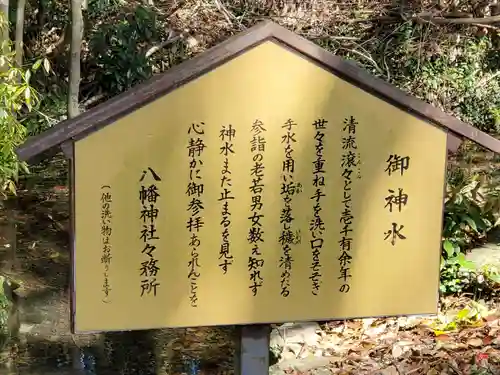 御神水
清流滾々として壱千有余年の
世々を重ね手を洗い口をそそぎ
手水を用い垢を落し穢を清めたる
参詣の老若男女数え知れず
神水また止まるを見ず
心静かに御参拝あられんことを
八幡神社々務所
(他の洗い物はお断りします)